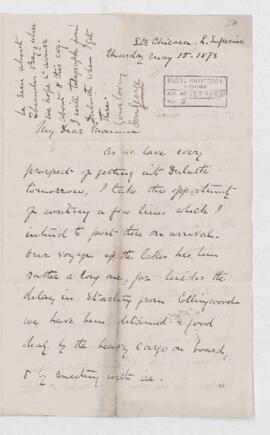 Str. Chicora. L. Superior
Thursday May 15. 1873
My Dear Mamma
As we have every
prospect of getting into Duluth
tomorrow, I take this opportunity
of writing a few lines which I
intend to post there on arrival.
Our voyage up the Lakes has been
rather a long one, for besides the
delay in starting from Collingwood
we have been detained a good
deal by the heavy cargo on board,
& by meeting with ice.
be seen about
Thunder Bay where
we hope to arrive
about 8 this evg.
I will telegraph from
Duluth when I get
there.
Your loving
Son George